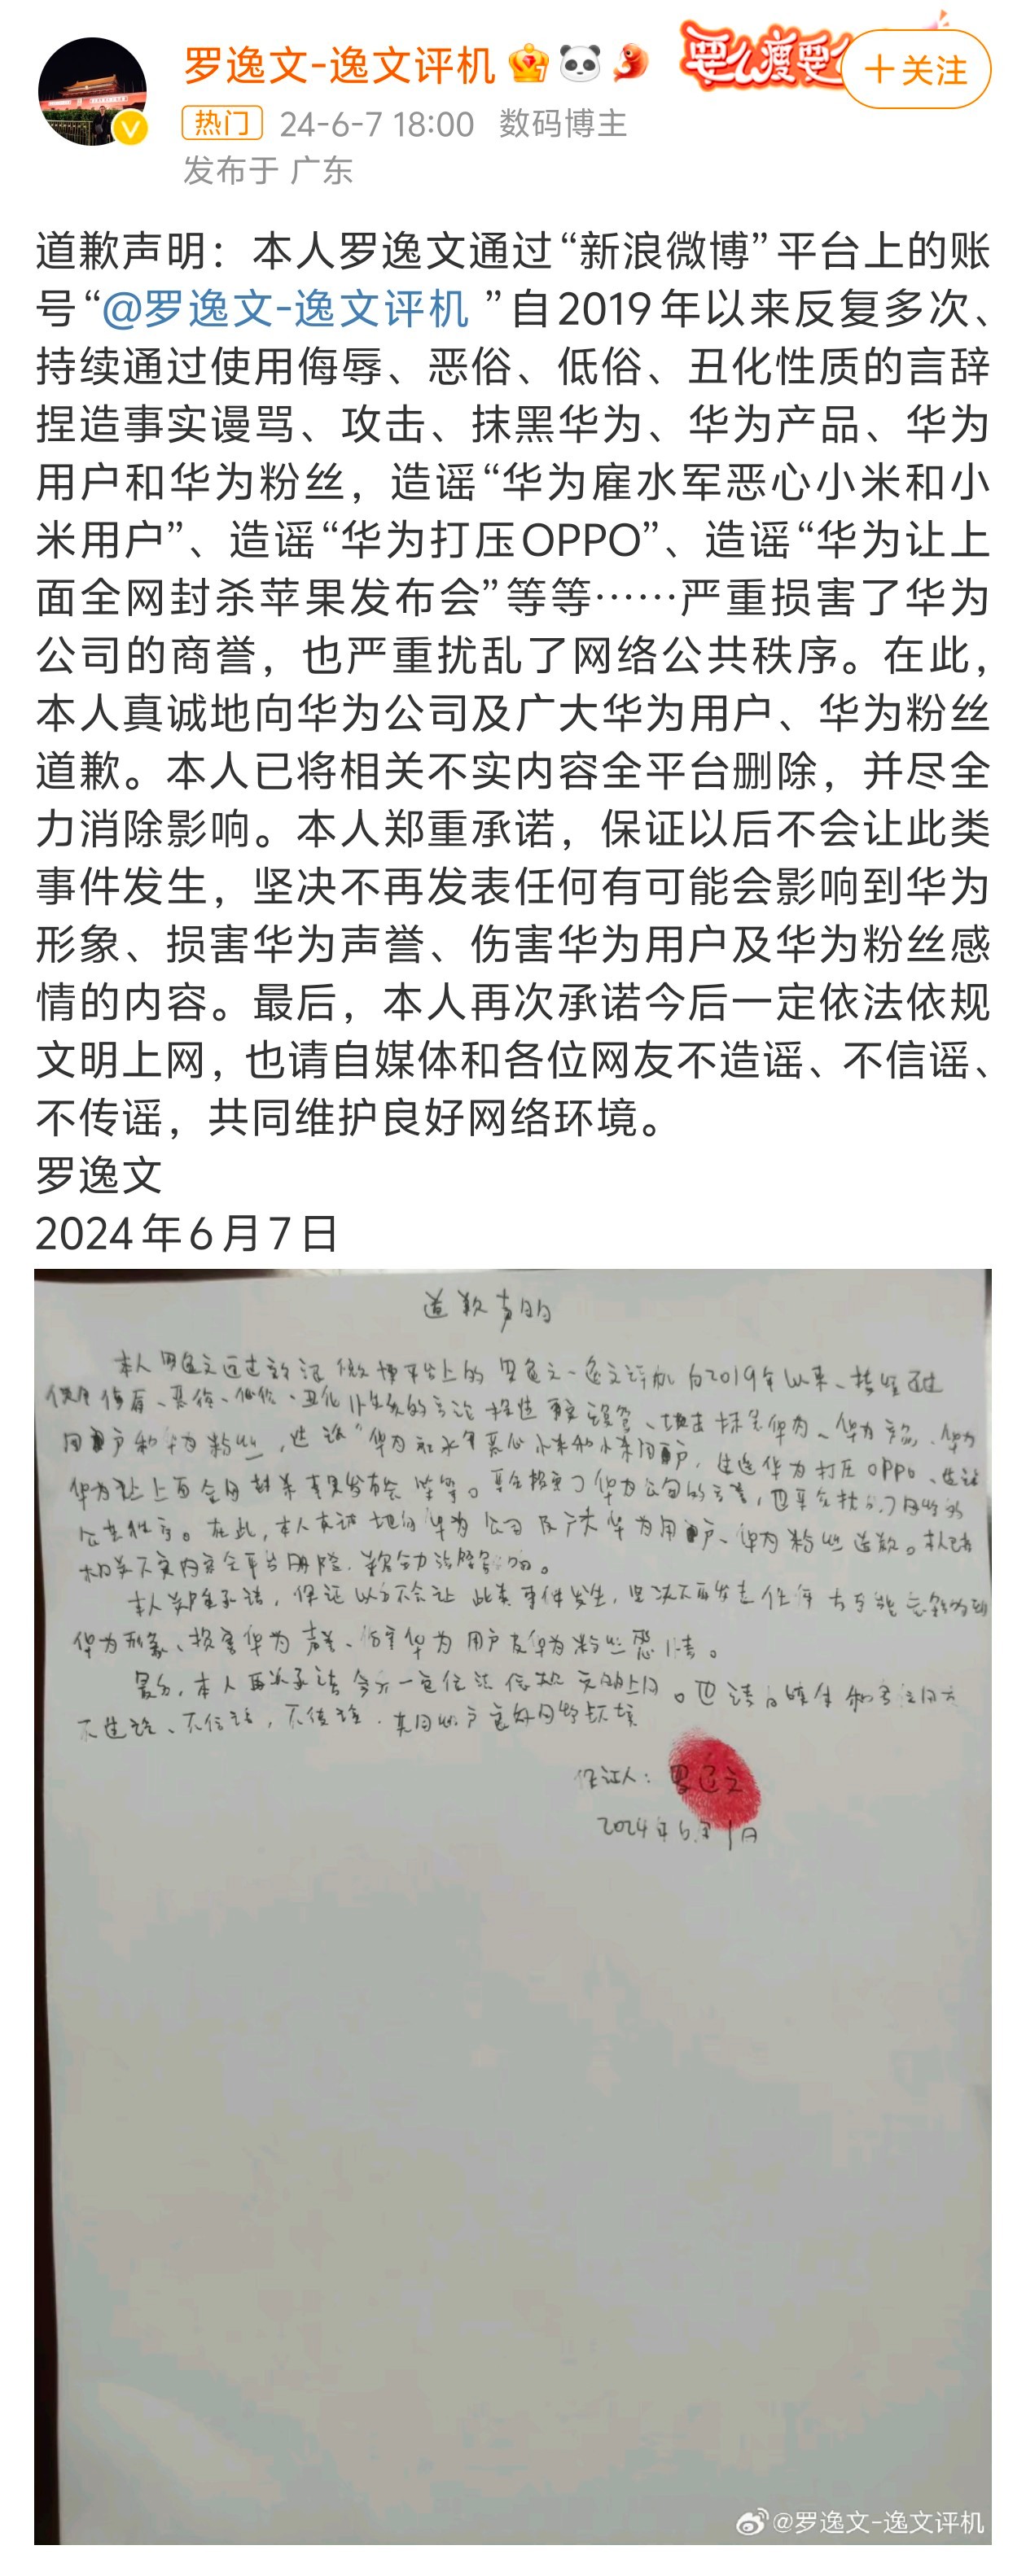 罗逸文-逸文评机
要么瘦要么
+关注
热门 24-6-7 18:00 数码博主
发布于 广东
道歉声明：本人罗逸文通过“新浪微博”平台上的账
号“@罗逸文-逸文评机 ”自2019年以来反复多次、
持续通过使用侮辱、恶俗、低俗、丑化性质的言辞
捏造事实谩骂、攻击、抹黑华为、华为产品、华为
用户和华为粉丝，造谣“华为雇水军恶心小米和小
米用户”、造谣“华为打压OPPO”、造谣“华为让上
面全网封杀苹果发布会”等等……严重损害了华为
公司的商誉，也严重扰乱了网络公共秩序。在此，
本人真诚地向华为公司及广大华为用户、华为粉丝
道歉。本人已将相关不实内容全平台删除，并尽全
力消除影响。本人郑重承诺，保证以后不会让此类
事件发生，坚决不再发表任何有可能会影响到华为
形象、损害华为声誉、伤害华为用户及华为粉丝感
情的内容。最后，本人再次承诺今后一定依法依规
文明上网，也请自媒体和各位网友不造谣、不信谣、
不传谣，共同维护良好网络环境。
罗逸文
2024年6月7日
道歉声明
本人罗逸文通过新浪微博平台上的罗逸文-逸文评机自2019年以来、持续通过
使用侮辱、恶俗、低俗、丑化性质的言论捏造事实谩骂、攻击抹黑华为、华为产品、华为
用户和华为粉丝，造谣“华为雇水军恶心小米和小米用户，造谣华为打压OPPO、造谣
华为让上面全网封杀苹果发布会等等。严重损害了华为公司的商誉，也严重扰乱了网络的
公共秩序。在此，本人真诚地向华为公司及广大华为用户、华为粉丝道歉。本人已将
相关不实内容全平台删除，
本人郑重承诺，保证以后不会让此类事件发生，坚决不再发表任何有可能会影响到
华为形象、损害华为声誉、伤害华为用户及华为粉丝感情。
最后，本人再次承诺今后一定依法依规文明上网。也请自媒体和各位网友
不造谣、不信谣，不传谣，共同维护良好网络环境
保证人：罗逸文
2024年6月 日
@罗逸文-逸文评机